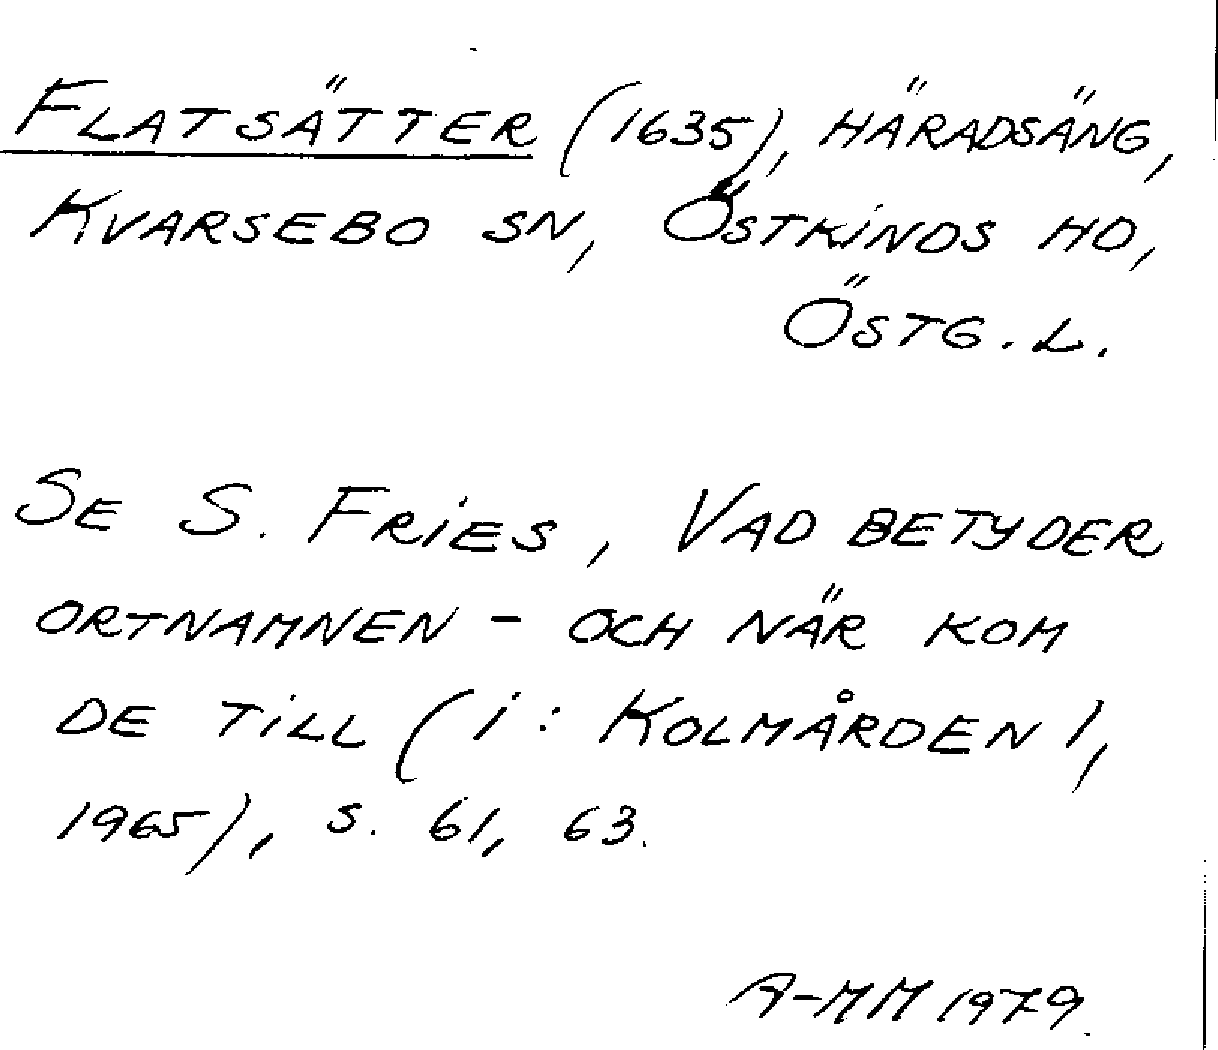 FLATSÄTTER (1635), HÄRADSÄNG,
KVARSEBO SN, ÖSTKINDS HD,
ÖSTG. L.
SE S. FRIES, VAD BETYDER
ORTNAMNEN - OCH NÄR KOM
DE TILL (I: KOLMÅRDEN 1,
1965), S. 61, 63.
A-MM 1979.